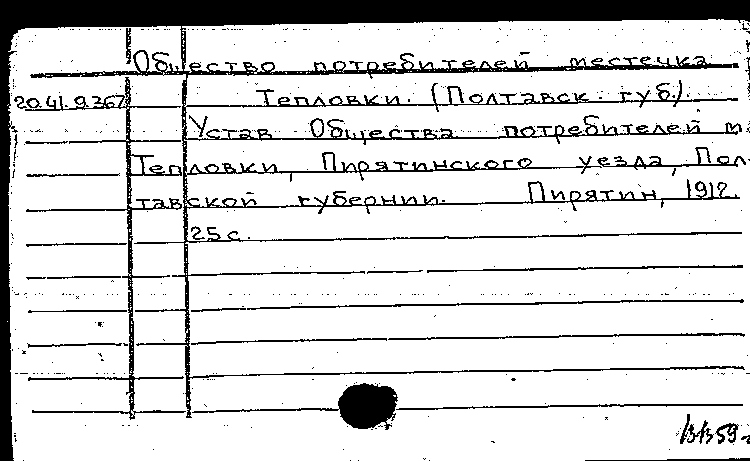 Общество потребителей местечка
20.41.9.367 Тепловки. (Полтавск. губ.).
Устав Общества потребителей м.
Тепловки, Пирятинского уезда, Пол-
тавской губернии. Пирятин, 1912.
25 с.